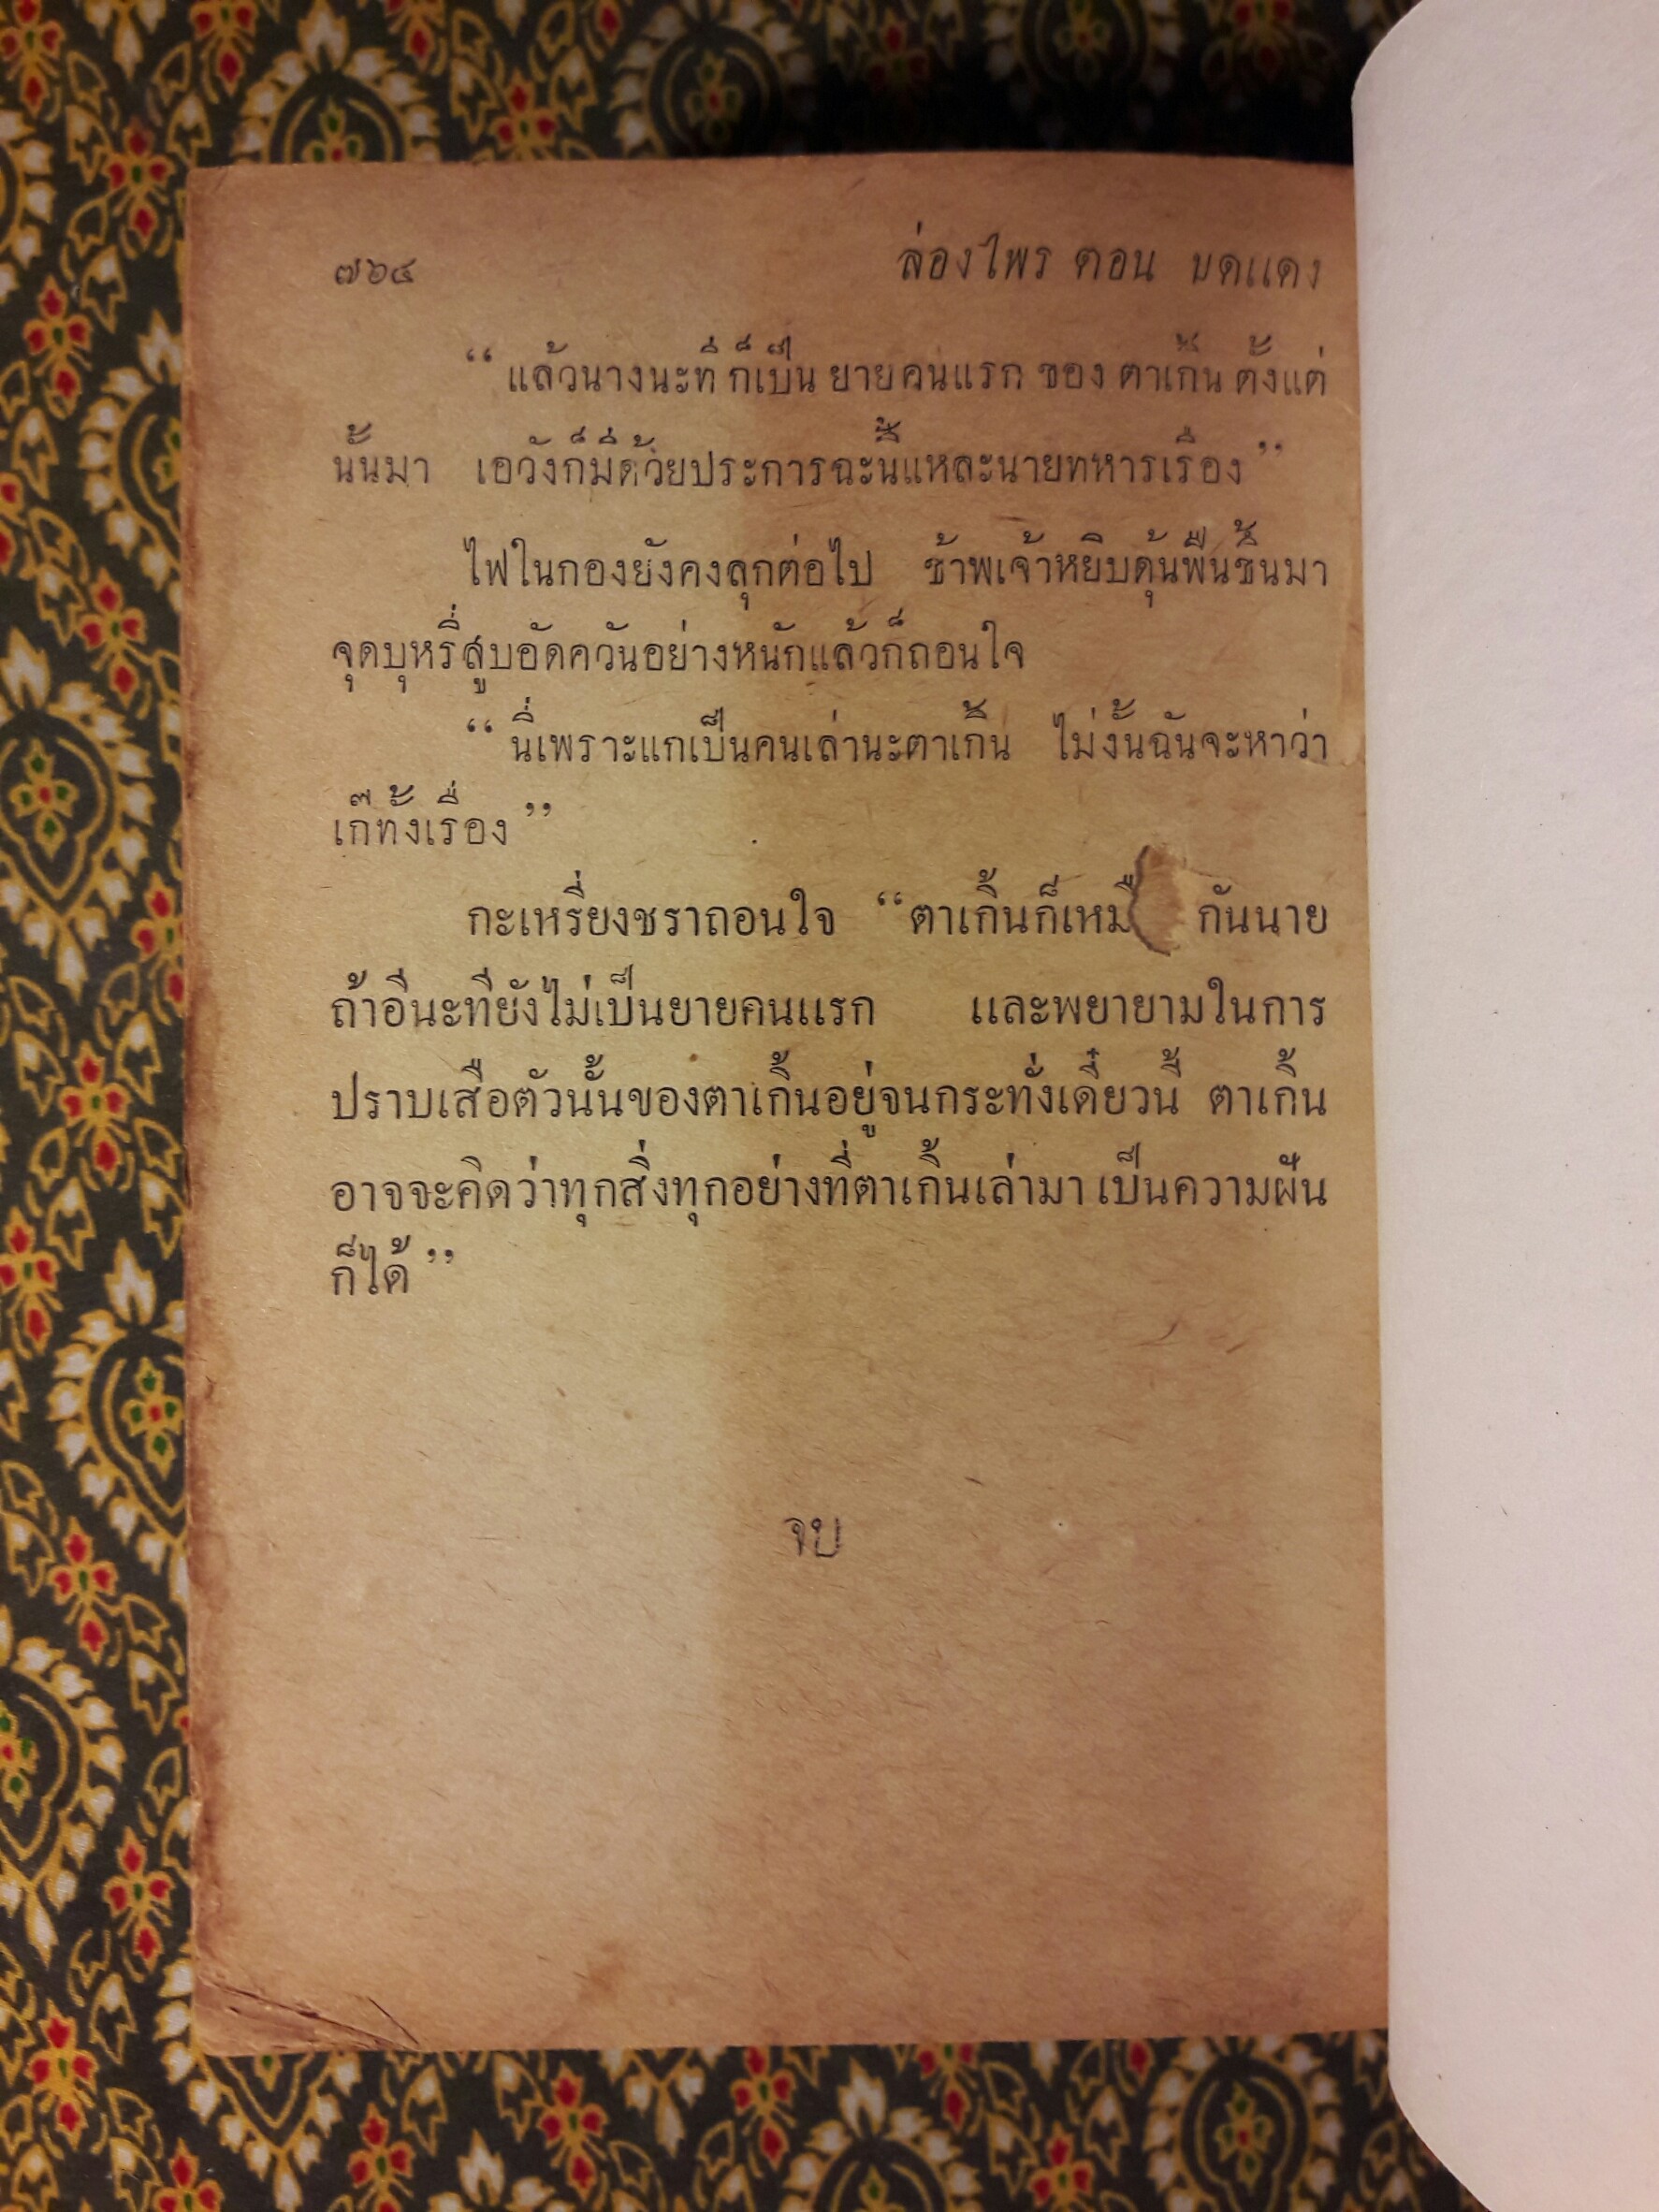 ๗๖๔ ล่องไพร ตอน บดแดง
“แล้วนางนะที ก็เป็น ยายคนแรก ของ ตาเกิ้น ตั้งแต่
นั้นมา เอวังก็มีด้วยประการฉะนี้แหละนายทหารเรือง”
ไฟในกองยังคงลุกต่อไป ข้าพเจ้าหยิบดุ้นฟืนขึ้นมา
จุดบุหรี่สูบอัดควันอย่างหนักแล้วก็ถอนใจ
“นี่เพราะแกเป็นคนเล่านะตาเกิ้น ไม่งั้นฉันจะหาว่า
เก๊ทั้งเรื่อง”
กะเหรี่ยงชราถอนใจ “ตาเกิ้นก็เหมื กันนาย
ถ้าอีนะทียังไม่เป็นยายคนแรก และพยายามในการ
ปราบเสือตัวนั้นของตาเกิ้นอยู่จนกระทั่งเดี๋ยวนี้ ตาเกิ้น
อาจจะคิดว่าทุกสิ่งทุกอย่างที่ตาเกิ้นเล่ามา เป็นความฝัน
ก็ได้”
จบ